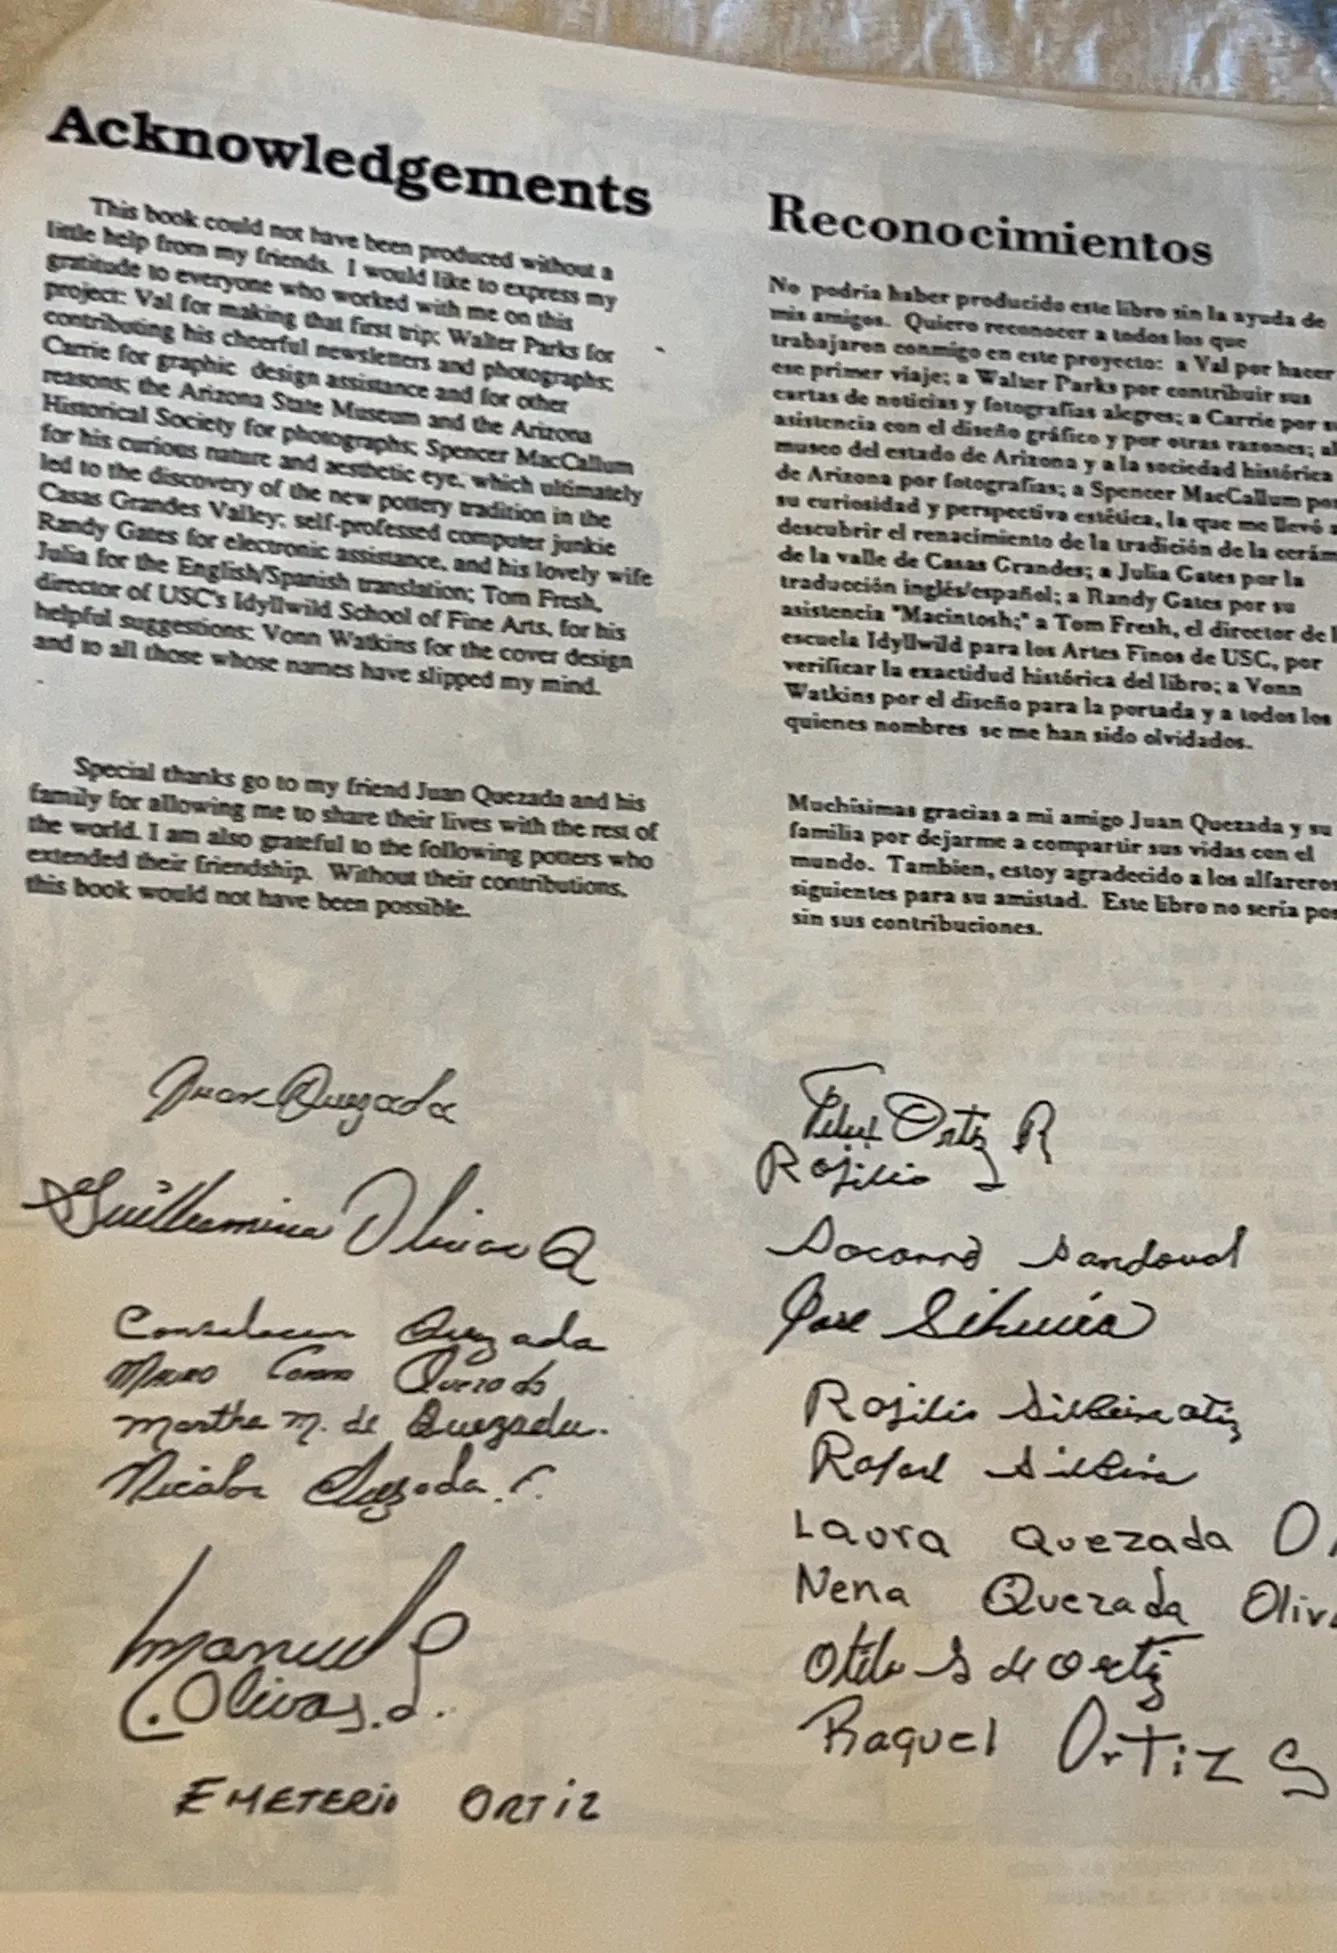 Acknowledgements
This book could not have been produced without a
little help from my friends. I would like to express my
gratitude to everyone who worked with me on this
project: Val for making that first trip; Walter Parks for
contributing his cheerful newsletters and photographs;
Carrie for graphic design assistance and for other
reasons; the Arizona State Museum and the Arizona
Historical Society for photographs; Spencer MacCallum
for his curious nature and aesthetic eye, which ultimately
led to the discovery of the new pottery tradition in the
Casas Grandes Valley; self-professed computer junkie
Randy Gates for electronic assistance, and his lovely wife
Julia for the English/Spanish translation; Tom Fresh,
director of USC's Idyllwild School of Fine Arts, for his
helpful suggestions; Vonn Watkins for the cover design
and to all those whose names have slipped my mind.
Special thanks go to my friend Juan Quezada and his
family for allowing me to share their lives with the rest of
the world. I am also grateful to the following potters who
extended their friendship. Without their contributions,
this book would not have been possible.
Juan Quezada
Guillermina Olivas Q
Consolacion Quezada
Mauro Corona Quezada
Martha M. de Quezada.
Nicolas Quezada. C.
Manuel
Olivas.
EMETERIO ORTIZ
Reconocimientos
No podría haber producido este libro sin la ayuda de
mis amigos. Quiero reconocer a todos los que
trabajaron conmigo en este proyecto: a Val por hacer
ese primer viaje; a Walter Parks por contribuir sus
cartas de noticias y fotografías alegres; a Carrie por
asistencia con el diseño gráfico y por otras razones; al
museo del estado de Arizona y a la sociedad histórica
de Arizona por fotografías; a Spencer MacCallum por
su curiosidad y perspectiva estética, la que me llevó a
descubrir el renacimiento de la tradición de la cerám
de la valle de Casas Grandes; a Julia Gates por la
traducción inglés/español; a Randy Gates por su
asistencia "Macintosh;" a Tom Fresh, el director de l
escuela Idyllwild para los Artes Finos de USC, por
verificar la exactidud histórica del libro; a Vonn
Watkins por el diseño para la portada y a todos los
quienes nombres se me han sido olvidados.
Muchísimas gracias a mi amigo Juan Quezada y su
familia por dejarme a compartir sus vidas con el
mundo. Tambien, estoy agradecido a los alfareros
siguientes para su amistad. Este libro no sería pos
sin sus contribuciones.
Felix Ortiz R
Rojilio
Socorro Sandoval
Jose Silveira
Rojilio Silveira Ortiz
Rafael Silveira
Laura Quezada O
Nena Quezada Oliv
Otila S de Ortiz
Raquel Ortiz S